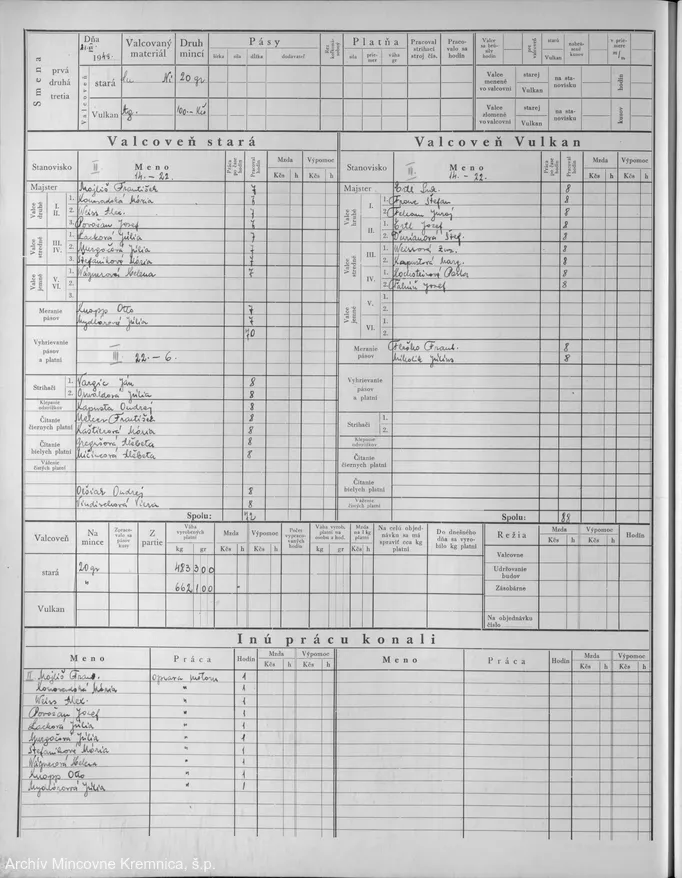 Smena
prvá
druhá
tretia
Dňa
1948.
Valcovaný materiál
Druh mincí
Pásy
šírka sila dĺžka dodávateľ
Platňa
sila priemer váha gr
Pracoval strihací stroj čís.
Pracovalo sa hodín
Valcoveň
stará Ni 20 gr
Vulkan Ag. 100.- Kčs
stará
Vulkan
Valce menené vo valcovni
starej
Vulkan
na stanovisku
hodín
Valce zlomené vo valcovni
starej
Vulkan
na stanovisku
kusov
Valcoveň stará
Stanovisko
III
Meno
14.-22.
Práca po čase hodín
Pracoval hodín
Meda
Výpomoc
Kčs h Kčs h
Majster Mojžiš František 7
Valce hrubé I. II.
1. Komoradská Mária 7
2. Weiss Alex. 7
3. Porošan Jozef 7
Valce stredné III. IV.
1. Lacková Júlia 7
2. Murgačová Júlia 7
3. Štefaniková Mária 7
Valce jemné V. VI.
1. Wágnerová Helena 7
2.
3.
Meranie pásov
Knapp Otto 7
Mydlárová Júlia 7
70
Vyhrievanie pásov a platní
III 22.-6.
Strihači
1. Vargic Ján 8
2. Osvaldová Júlia 8
Klepanie odstrižkov Kapusta Ondrej 8
Čítanie čiernych platní
Mercer František 8
Kaštierová Mária 8
Čítanie bielych platní
Gregušová Alžbeta 8
Mičincová Alžbeta 8
Váženie čistých platní
Očovan Ondrej 8
Vindischová Viera 8
Spolu: 72
Valcoveň Vulkan
Stanovisko
III.
Meno
14.-22.
Práca po čase hodín
Pracoval hodín
Meda
Výpomoc
Kčs h Kčs h
Majster 8
Valce hrubé
I.
1. Franc Štefan 8
2. Feleam Juraj 8
II.
1. Ertl Jozef 8
2. Durianová Štef. 8
Valce stredné
III.
1. Weissová Zuz. 8
2. Kapustová Marg. 8
IV.
1. 8
2. Jozef 8
Valce jemné
V.
1.
2.
VI.
1.
2.
Meranie pásov
Fleško Frant. 8
Mikolik Július 8
Vyhrievanie pásov a platní
Strihači
1.
2.
Klepanie odstrižkov
Čítanie čiernych platní
Čítanie bielych platní
Váženie čistých platní
Spolu: 88
Valcoveň
Na mince
Z partie
Váha vyrobených platní
kg gr
Meda
Kčs h
Výpomoc
Kčs h
Počet vypracovaných hodín
Váha vyrob. platní na osobu a hod.
kg gr
Meda na 1 kg platní
Kčs h
Na celú objednávku sa má spraviť cca kg platní
Do dnešného dňa sa vyrobilo kg platní
Réžia
Meda
Kčs h
Výpomoc
Kčs h
Hodín
stará 20 gr 483 300
" 662 100
Vulkan
Valcovne
Udržovanie budov
Zásobárne
Na objednávku číslo
Inú prácu konali
Meno
Práca
Hodín
Meda
Kčs h
Výpomoc
Kčs h
Meno
Práca
Hodín
Meda
Kčs h
Výpomoc
Kčs h
II. Mojžiš Frant. oprava motora 1
Komoradská Mária " 1
Weiss Alex. " 1
Porošan Jozef " 1
Lacková Júlia " 1
Murgačová Júlia " 1
Štefaniková Mária " 1
Wágnerová Helena " 1
Knapp Otto " 1
Mydlárová Júlia " 1
Archív Mincovne Kremnica, š.p.